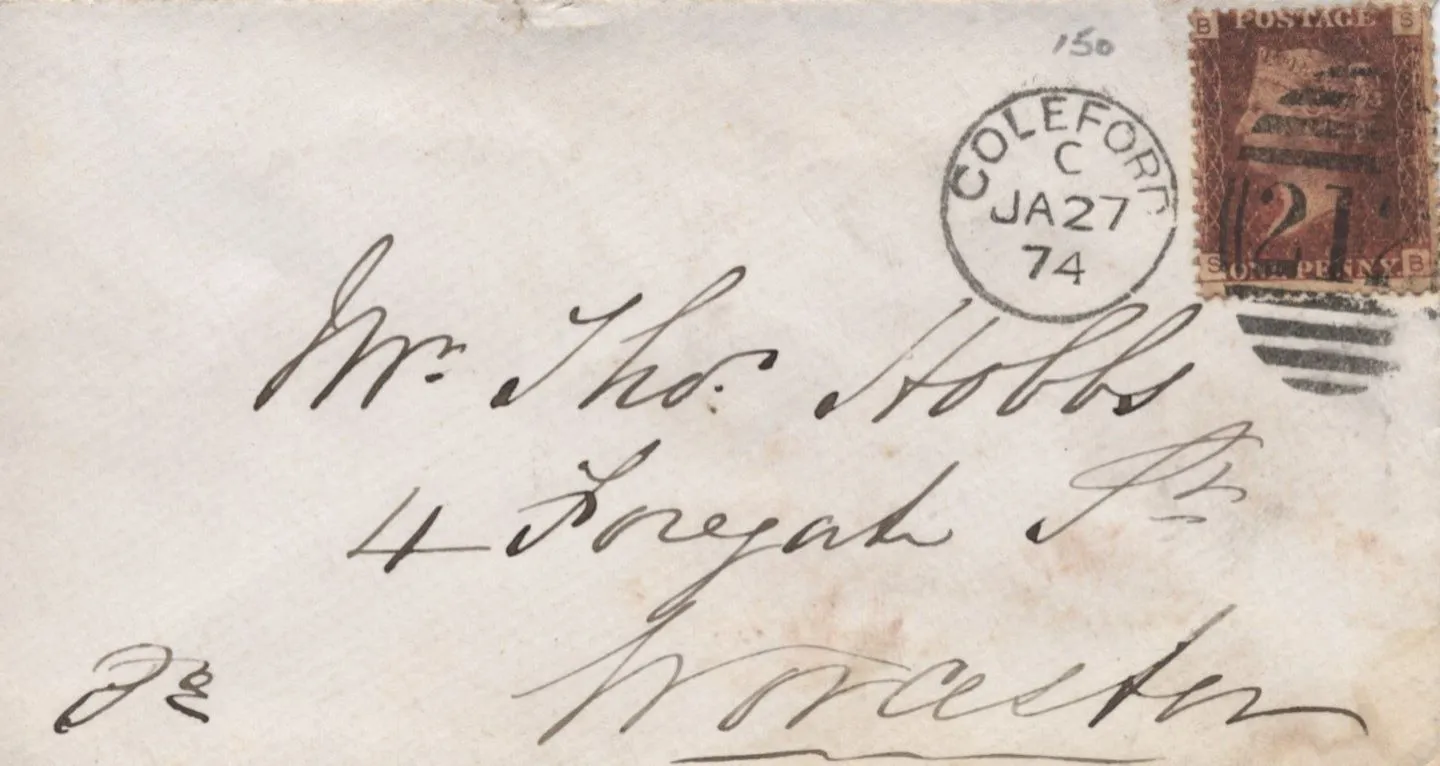 150
B POSTAGE S
COLEFORD
C
JA27
74
212
S ONE PENNY B
Mr. Thos. Hobbs
4 Foregate St.
Worcester